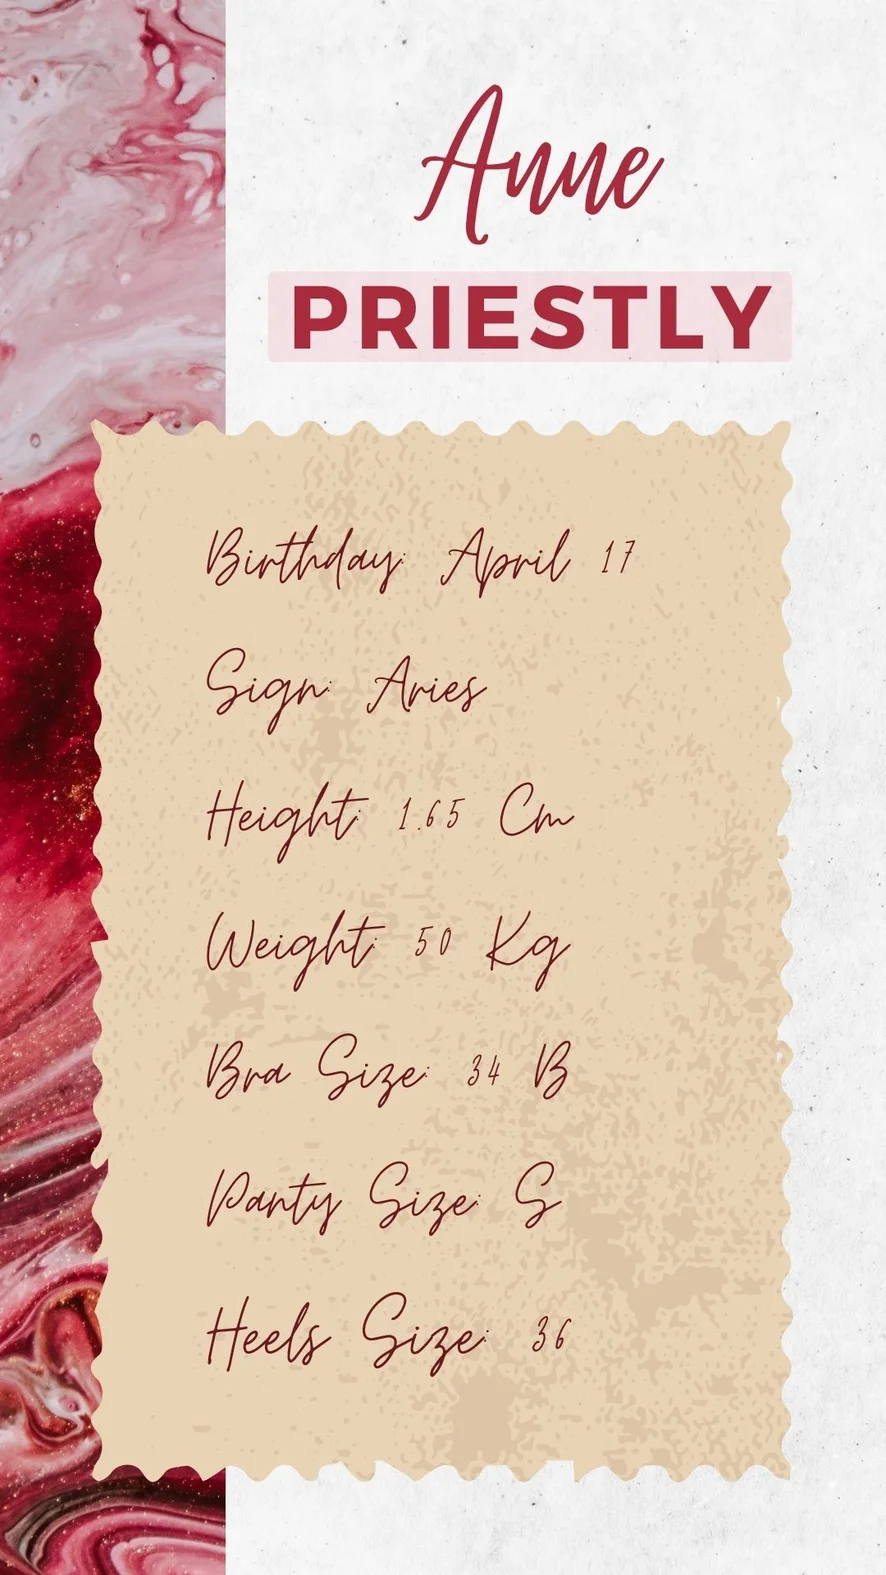 Anne
PRIESTLY
Birthday: April 17
Sign: Aries
Height: 1.65 Cm
Weight: 50 Kg
Bra Size: 34 B
Panty Size: S
Heels Size: 36